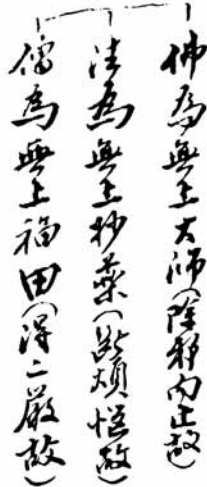 佛為無上大師(除邪向正故)
法為無上妙藥(斷煩惱故)
僧為無上福田(得二嚴故)